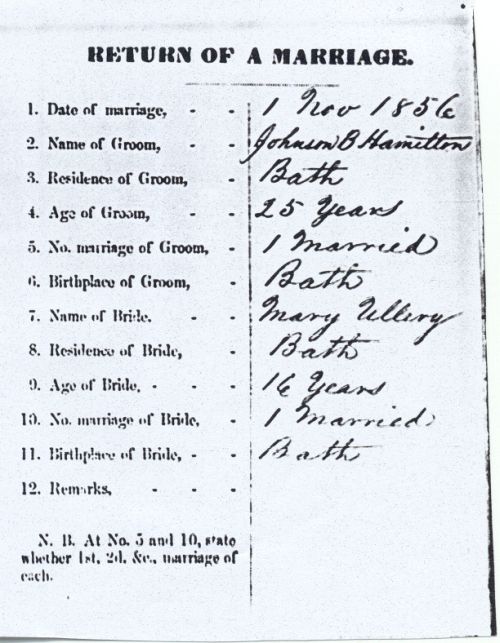 RETURN OF A MARRIAGE.
1. Date of marriage, - - 1 Nov 1856
2. Name of Groom, - - Johnson B Hamilton
3. Residence of Groom, - Bath
4. Age of Groom, - - 25 Years
5. No. marriage of Groom, - 1 Married
6. Birthplace of Groom, - Bath
7. Name of Bride. - - Mary Ullery
8. Residence of Bride, - Bath
9. Age of Bride, - - - 16 Years
10. No. marriage of Bride, - 1 Married
11. Birthplace of Bride, - - Bath
12. Remarks, - - -
N. B. At No. 5 and 10, state
whether 1st, 2d. &c., marriage of
each.